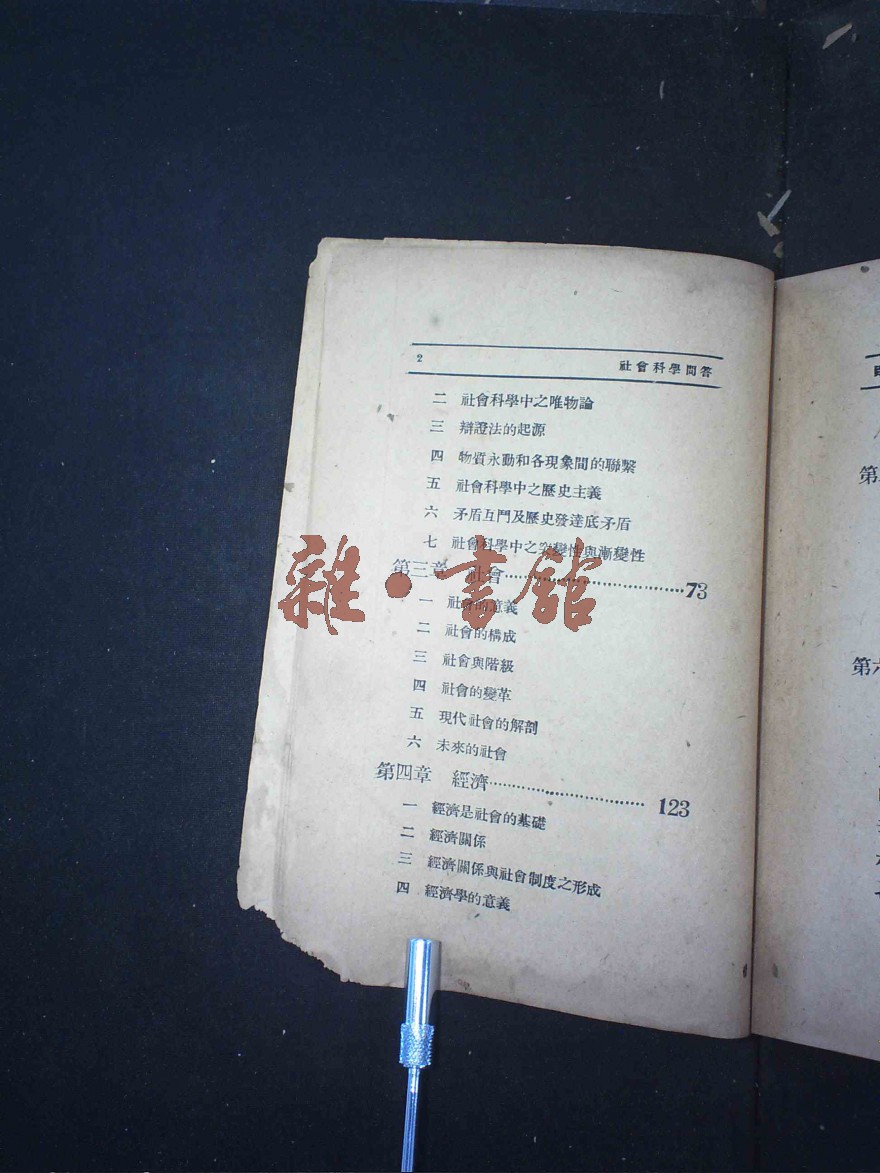 2 社會科學問答
二 社會科學中之唯物論
三 辯證法的起源
四 物質永動和各現象間的聯繫
五 社會科學中之歷史主義
六 矛盾互鬥及歷史發達底矛盾
七 社會科學中之突變性與漸變性
第三章 社會……………………………73
一 社會的意義
二 社會的構成
三 社會與階級
四 社會的變革
五 現代社會的解剖
六 未來的社會
第四章 經濟……………………… 123
一 經濟是社會的基礎
二 經濟關係
三 經濟關係與社會制度之形成
四 經濟學的意義
雜·書館
第
第六